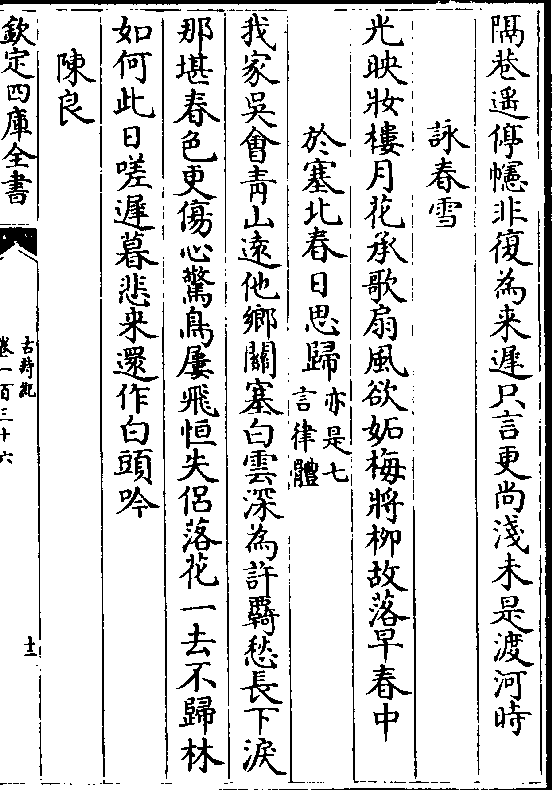 隔巷遥停幰非復為来遲只言更尚淺未是渡河時
詠春雪
光映妝樓月花承歌扇風欲妬梅將柳故落早春中
於塞北春日思歸亦是七言律體
我家吳會青山遠他鄉關塞白雲深為許羇愁長下淚
那堪春色更傷心驚鳥屢飛恒失侣落花一去不歸林
如何此日嗟遲暮悲来還作白頭吟
陳良
欽定四庫全書
古詩紀
卷一百三十六
十二